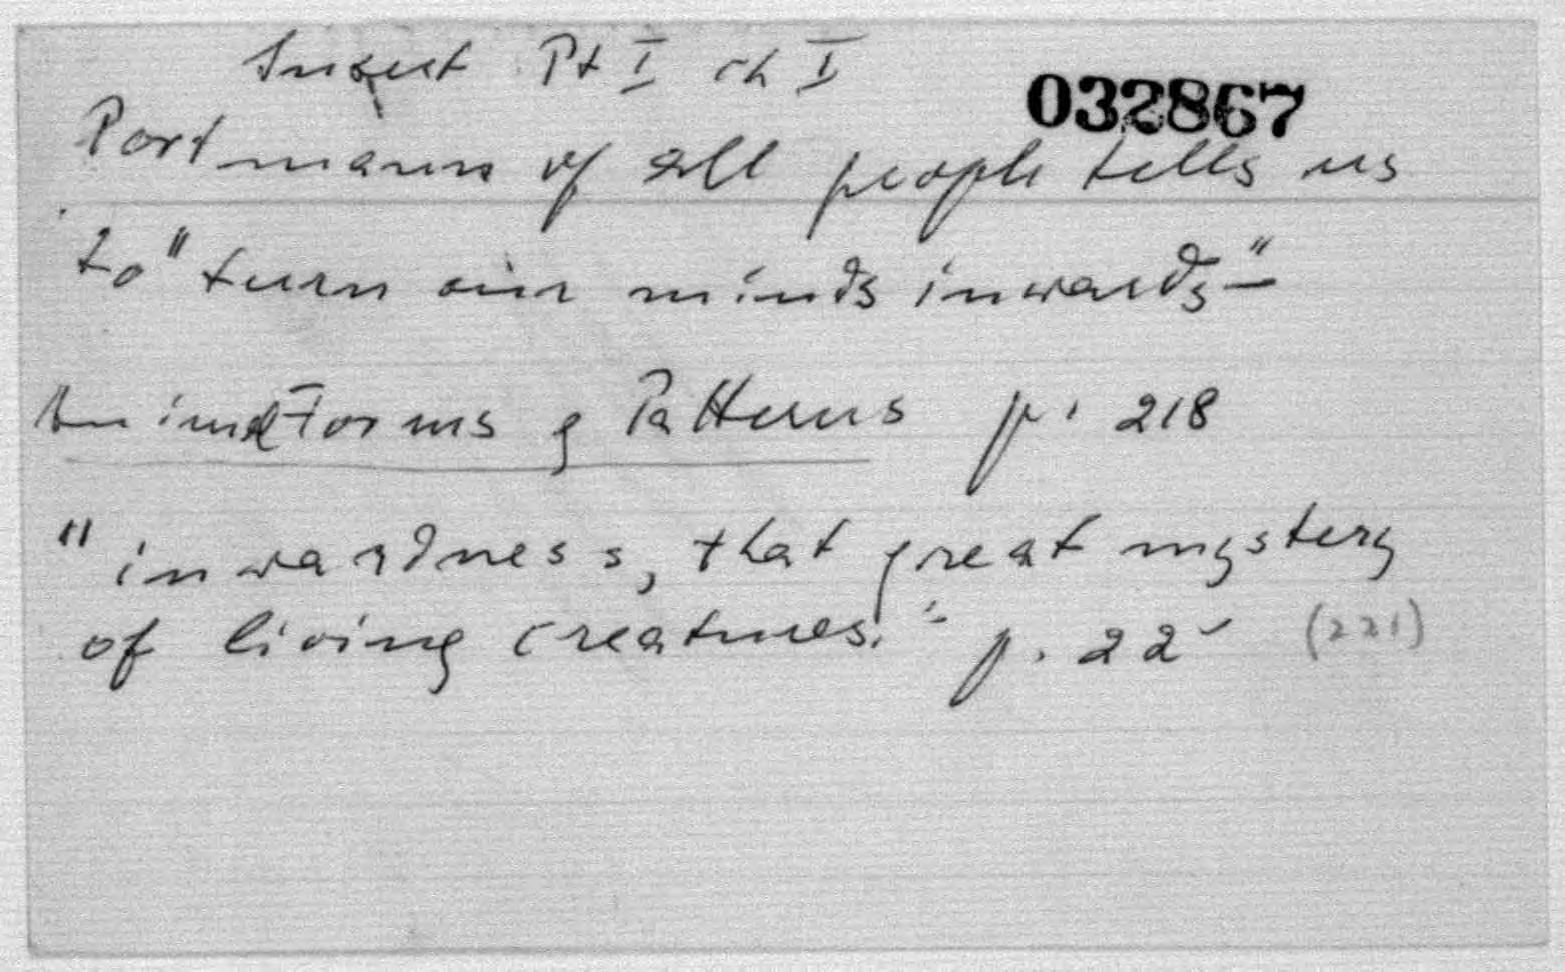 Insect Pt I ch I
032867
Portmann of all people tells us
to "turn our minds inwards"–
Animal Forms & Patterns p. 218
"inwardness, that great mystery
of living creatures." p. 22 (221)